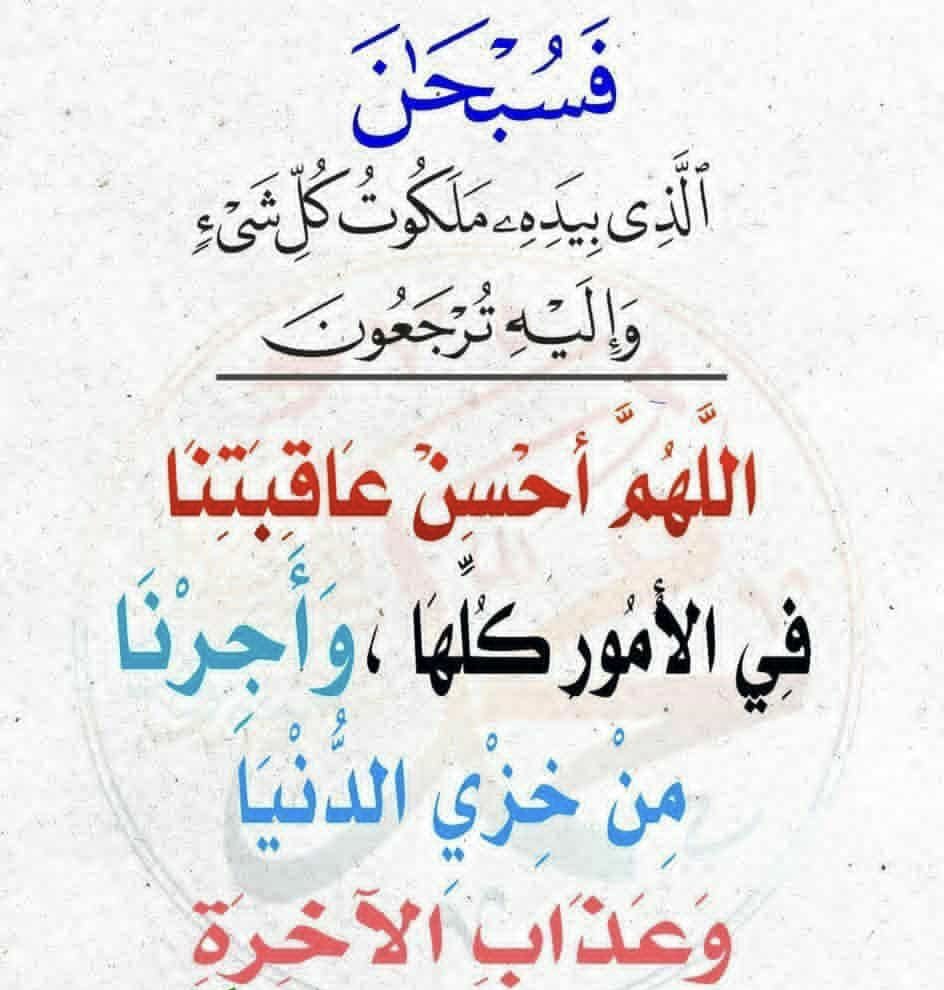 فَسُبْحَٰنَ
ٱلَّذِى بِيَدِهِۦ مَلَكُوتُ كُلِّ شَىْءٍ
وَإِلَيْهِ تُرْجَعُونَ
اللَّهُمَّ أحْسِنْ عَاقِبَتِنَا
فِي الأمُور كُلِّهَا ، وَأَجِرْنَا
مِنْ خِزْيِ الدُّنْيَا
وَعَذَابِ الآخِرَةِ